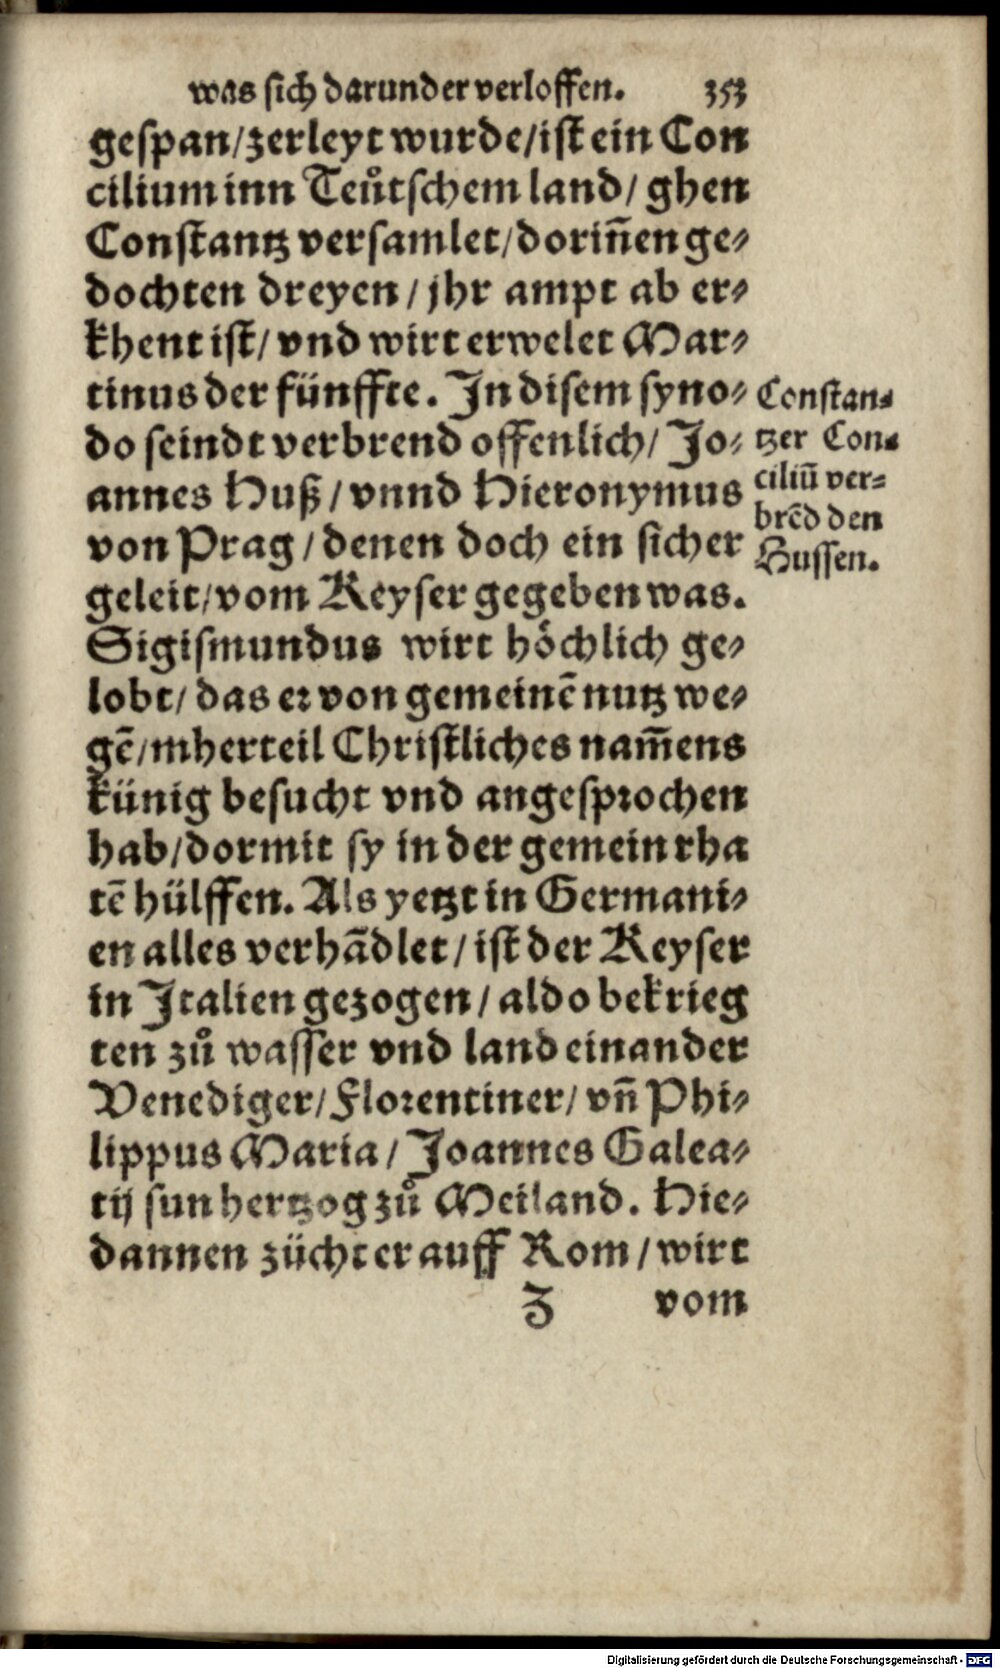 was sich darunder verloffen. 353
gespan/zerleyt wurde/ist ein Con
cilium inn Teůtschem land/ ghen
Constantz versamlet/dorin̄en ge⸗
dochten dreyen/ jhr ampt ab er⸗
khent ist/ vnd wirt erwelet Mar⸗
tinus der fünffte. In disem syno⸗
do seindt verbrend offenlich/ Jo⸗
annes Huß/ vnnd Hieronymus
von Prag/ denen doch ein sicher
geleit/vom Keyser gegeben was.
Sigismundus wirt höchlich ge⸗
lobt/ das er von gemeinē nutz we⸗
gē/mherteil Christliches nam̄ens
künig besucht vnd angesprochen
hab/dormit sy in der gemein rha
tē hülffen. Als yetzt in Germani⸗
en alles verhādlet/ ist der Keyser
in Italien gezogen/ aldo bekrieg
ten zů wasser vnd land einander
Venediger/ Florentiner/ vn̄ Phi⸗
lippus Maria/ Joannes Galea⸗
tij sun hertzog zů Meiland. Hie⸗
dannen zücht er auff Rom/ wirt
Z vom
Constan⸗
tzer Con⸗
ciliū ver⸗
brēd den
Hussen.
Digitalisierung gefördert durch die Deutsche Forschungsgemeinschaft - DFG